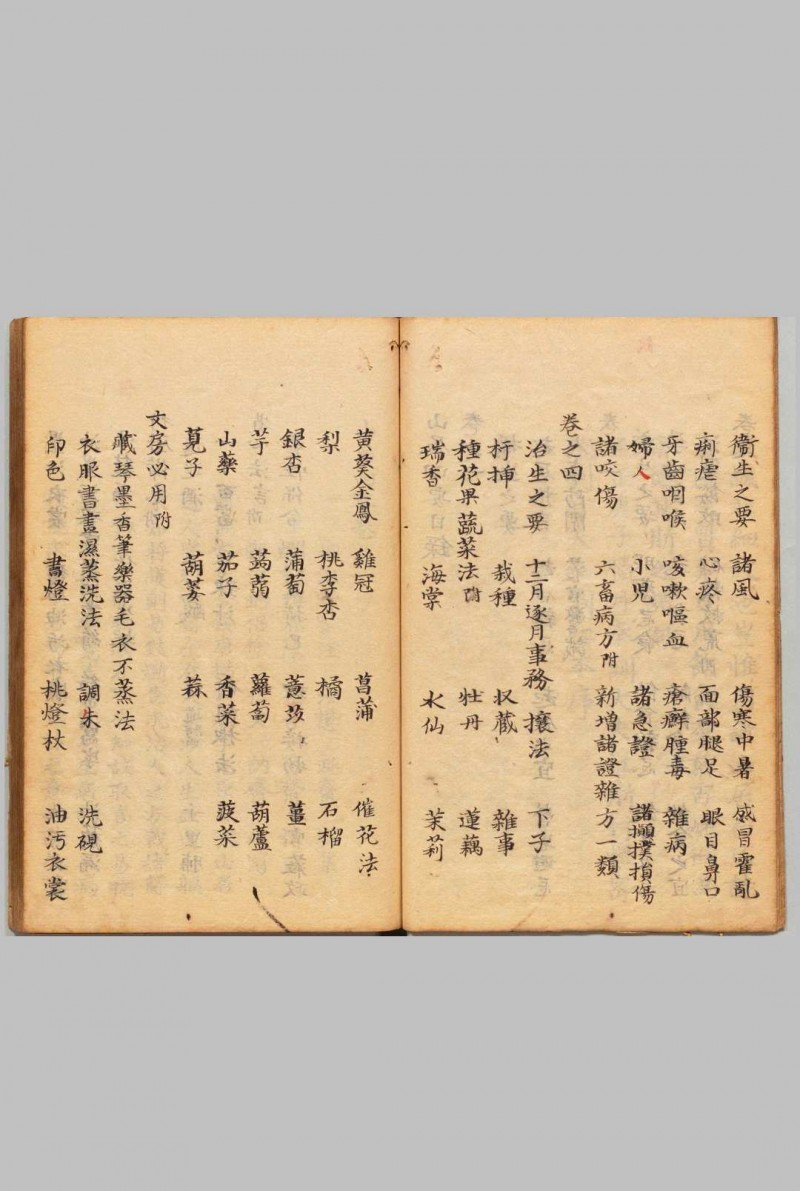 衛生之要 諸風 傷寒中暑 感冒霍亂
痢瘧 心疼 面部腿足 眼目鼻口
牙齒咽喉 咳嗽嘔血 瘡癬腫毒 雜病
婦人 小児 諸急證 諸攧撲損傷
諸咬傷 六畜病方附 新增諸證雜方一類
卷之四
治生之要 十二月逐月事務 攘法 下子
扦揷 栽種 収蔵 雜事
種花果蔬菜法附 牡丹 蓮藕
瑞香 海棠 水仙 茉莉
黃葵金鳳 雞冠 菖蒲 催花法
梨 桃李杏 橘 石榴
銀杏 蒲萄 薏苡 薑
芋 蒟蒻 蘿蔔 葫蘆
山藥 茄子 香菜 菠菜
莧子 葫荽 菻
文房必用附
蔵琴墨香筆樂器毛衣不蒸法
衣服書畫濕蒸洗法 調朱 洗硯
印色 書燈 挑燈杖 油汚衣裳